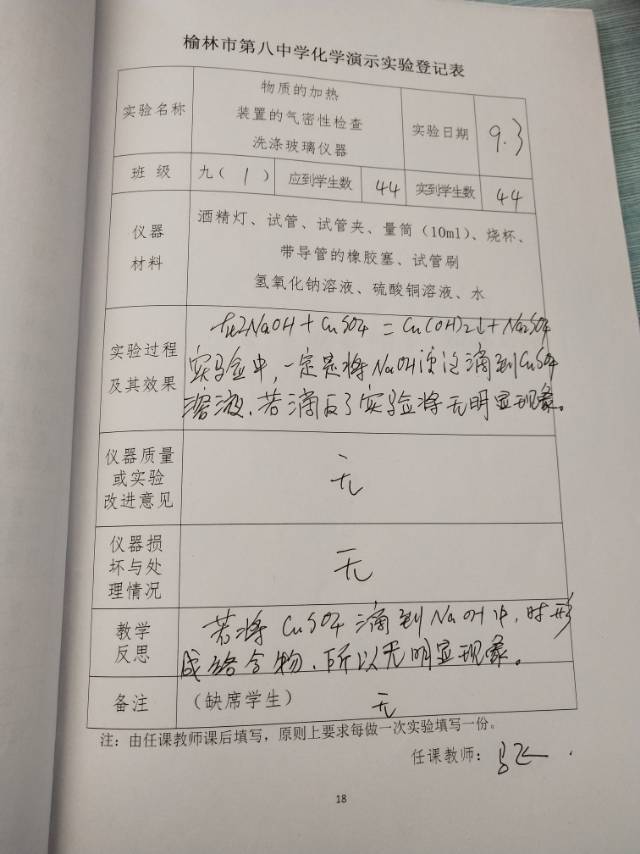 榆林市第八中学化学演示实验登记表
实验名称
物质的加热
装置的气密性检查
洗涤玻璃仪器
实验日期
9.3
班 级
九(1)
应到学生数
44
实到学生数
44
仪器
材料
酒精灯、试管、试管夹、量筒(10ml)、烧杯、
带导管的橡胶塞、试管刷
氢氧化钠溶液、硫酸铜溶液、水
实验过程
及其效果
2NaOH + CuSO4 = Cu(OH)2↓ + Na2SO4
实验中,一定是将NaOH滴到CuSO4
溶液,若滴反了实验将无明显现象。
仪器质量
或实验
改进意见
无
仪器损
坏与处
理情况
无
教学
反思
若将 CuSO4 滴到 NaOH中,时形
成络合物,所以无明显现象。
备注
(缺席学生)
无
注:由任课教师课后填写,原则上要求每做一次实验填写一份。
任课教师:
18